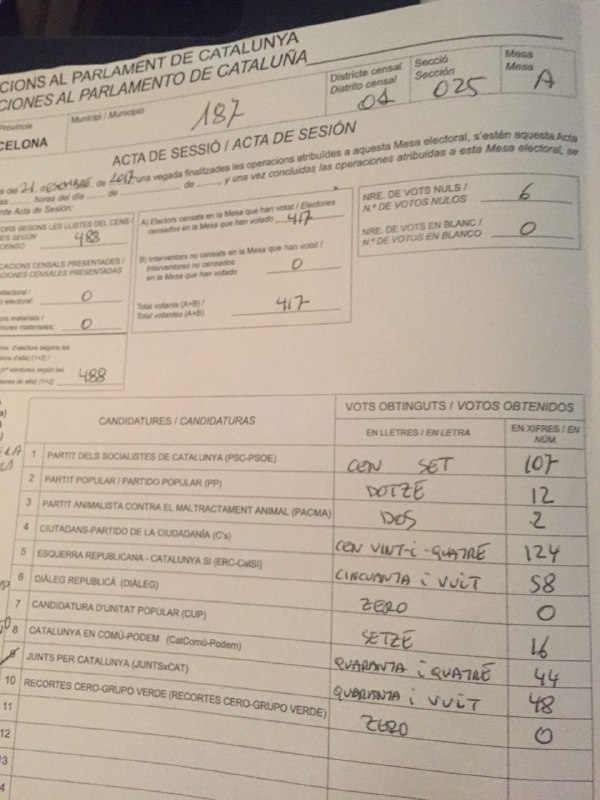 CIONS AL PARLAMENT DE CATALUNYA
CIONES AL PARLAMENTO DE CATALUÑA
Província Municipi / Municipio Districte censal Distrito censal Secció Sección Mesa Mesa
CELONA 187 01 025 A
ACTA DE SESSIÓ / ACTA DE SESIÓN
de 2017 una vegada finalitzades les operacions atribuïdes a aquesta Mesa electoral, s'estén aquesta Acta
horas del día de de , y una vez concluidas las operaciones atribuidas a esta Mesa electoral, se
nte Acta de Sesión:
ORS SEGONS LES LLISTES DEL CENS /
ES SEGÚN
CENSO 488
CACIONS CENSALS PRESENTADES /
CIONES CENSALES PRESENTADAS
electoral /
o electoral: 0
ors materials /
rrores materiales: 0
488
A) Electors censats en la Mesa que han votat / Electores
censados en la Mesa que han votado 417
B) Interventors no censats en la Mesa que han votat /
Interventores no censados
en la Mesa que han votado 0
Total votants (A+B) /
Total votantes (A+B) 417
NRE. DE VOTS NULS /
N.º DE VOTOS NULOS 6
NRE. DE VOTS EN BLANC /
N.º DE VOTOS EN BLANCO 0
CANDIDATURES / CANDIDATURAS VOTS OBTINGUTS / VOTOS OBTENIDOS
EN LLETRES / EN LETRA EN XIFRES / EN NÚM.
1 PARTIT DELS SOCIALISTES DE CATALUNYA (PSC-PSOE) CEN SET 107
2 PARTIT POPULAR / PARTIDO POPULAR (PP) DOTZE 12
3 PARTIT ANIMALISTA CONTRA EL MALTRACTAMENT ANIMAL (PACMA) DOS 2
4 CIUTADANS-PARTIDO DE LA CIUDADANÍA (C's) CEN VINT-i-QUATRE 124
5 ESQUERRA REPUBLICANA - CATALUNYA SI (ERC-CatSí) CINCUANTA i VUIT 58
6 DIÀLEG REPUBLICÀ (DIÀLEG) ZERO 0
7 CANDIDATURA D'UNITAT POPULAR (CUP) SETZE 16
8 CATALUNYA EN COMÚ-PODEM (CatComú-Podem) QUARANTA i QUATRE 44
9 JUNTS PER CATALUNYA (JUNTSxCAT) QUARANTA i VUIT 48
10 RECORTES CERO-GRUPO VERDE (RECORTES CERO-GRUPO VERDE) ZERO 0
11
12
3
4